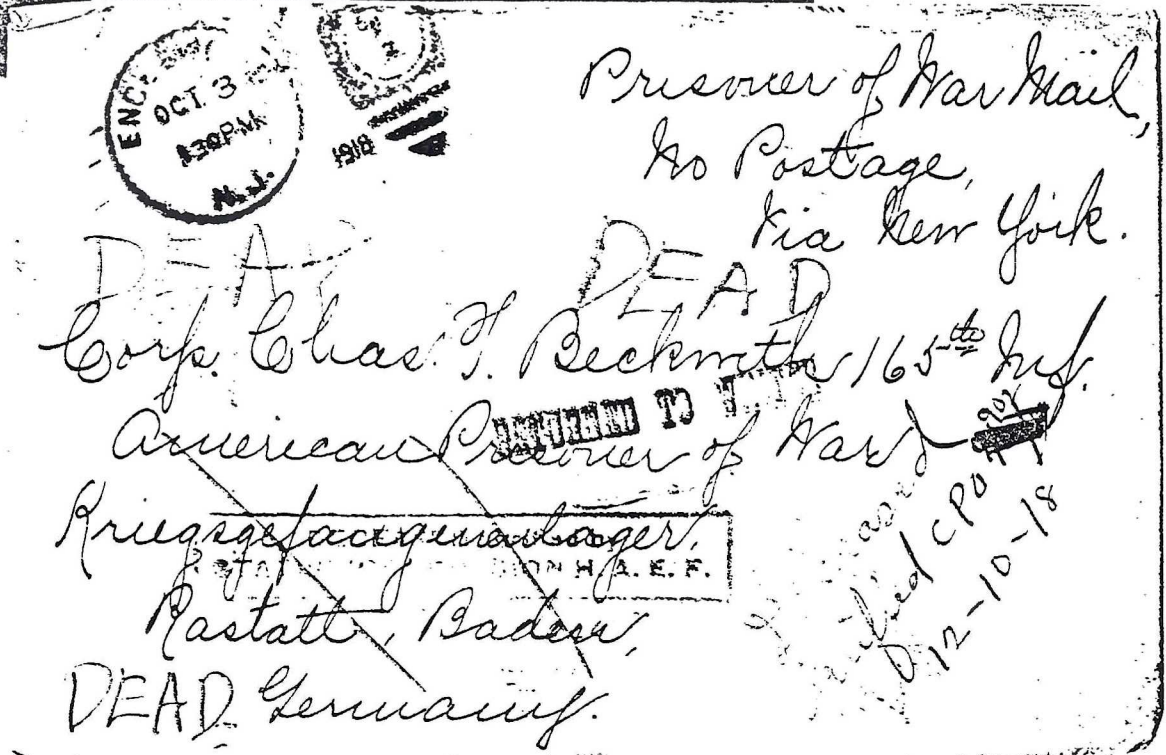 OCT 3
30 PM
N.J.
1918
Prisoner of War Mail,
No Postage,
Via New York.
DEAD DEAD
Corp. Chas. T. Beckwith 165th Inf.
RETURNED TO
American Prisoner of War
Kriegsgefangenenlager,
H. A. E. F.
Rastatt, Baden,
DEAD Germany.
Verified CPO
12-10-18